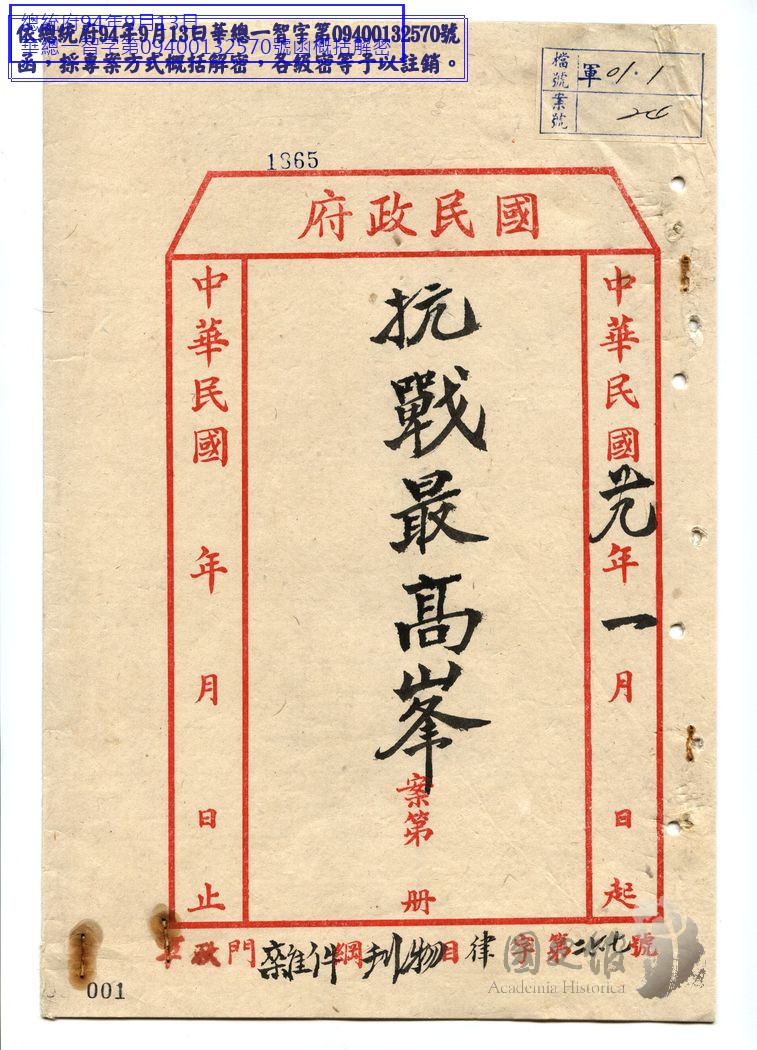 總統府94年9月13日
華總一智字第09400132570號函概括解密
依總統府94年9月13日華總一智字第09400132570號
函，採專案方式概括解密，各級密等予以註銷。
檔號 軍01.1
案號 24
1865
國民政府
中華民國 卅元年一月 日起
抗戰最高峯
案第 册
中華民國 年 月 日止
軍政門雜件綱刋物目律字第二六七號
001
國史館
Academia Historica